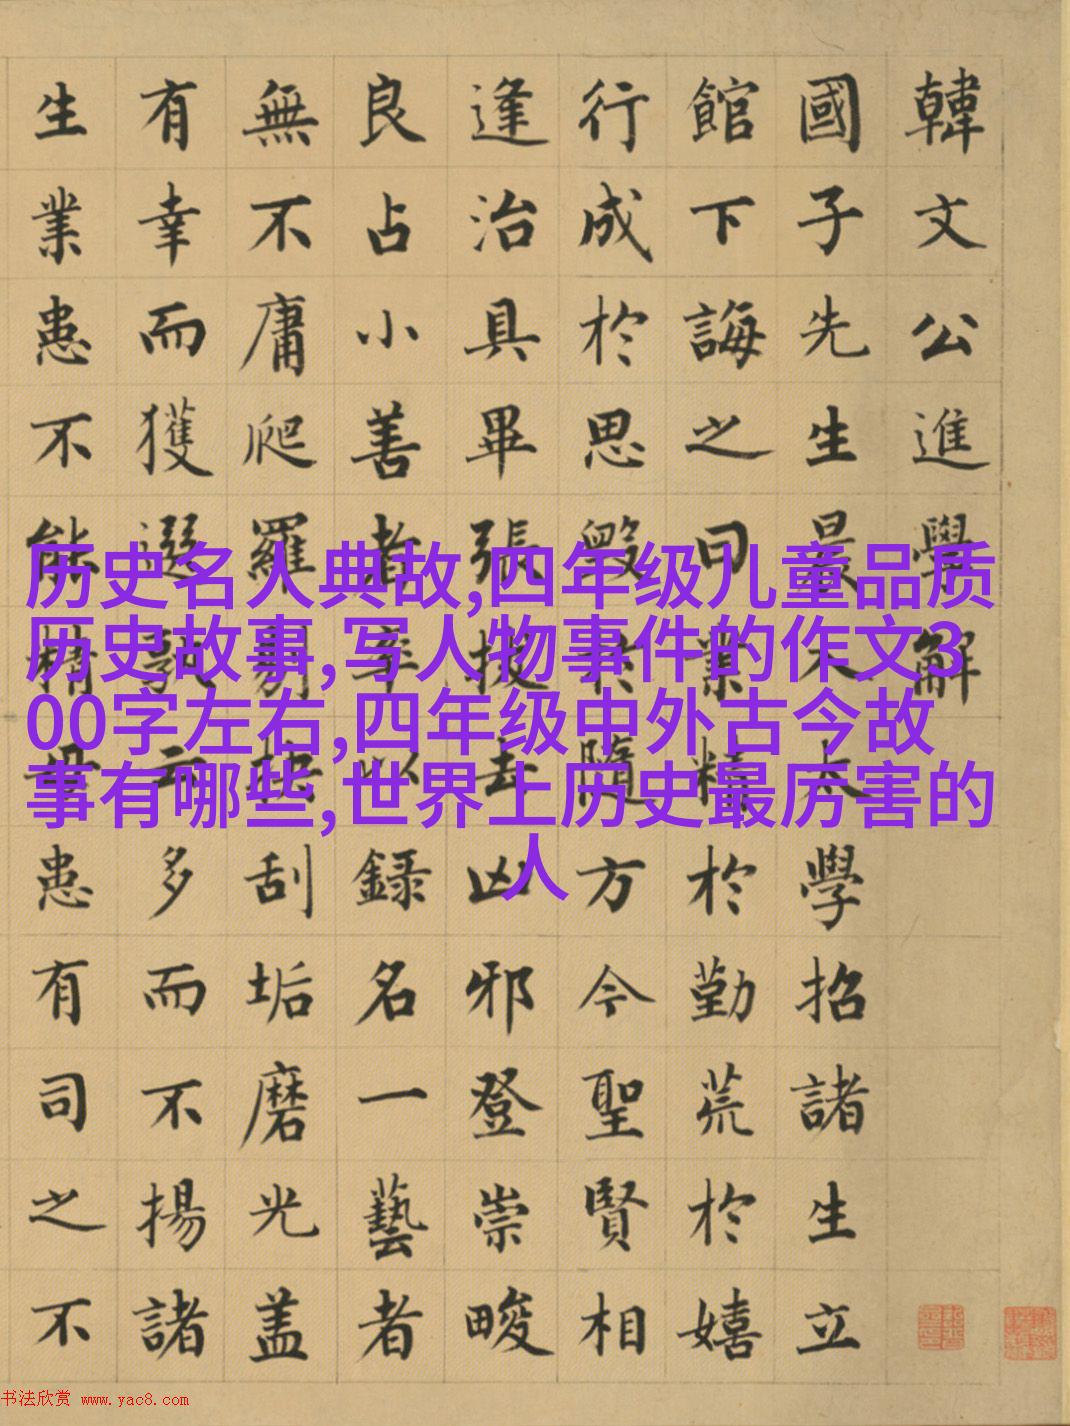 韓文公進學解
國子先生晨入太學招諸生立
館下誨之曰業精於勤荒於嬉
行成於思毀於隨方今聖賢相
逢治具畢張拔去凶邪登崇畯
良占小善者率以錄名一藝者
無不庸爬羅剔抉刮垢磨光盖
有幸而獲選孰云多而不揚諸
生業患不能精毋患有司之不
历史名人典故,四年级儿童品质
历史故事,写人物事件的作文3
00字左右,四年级中外古今故
事有哪些,世界上历史最厉害的
人
书法欣赏 www.yac8.com